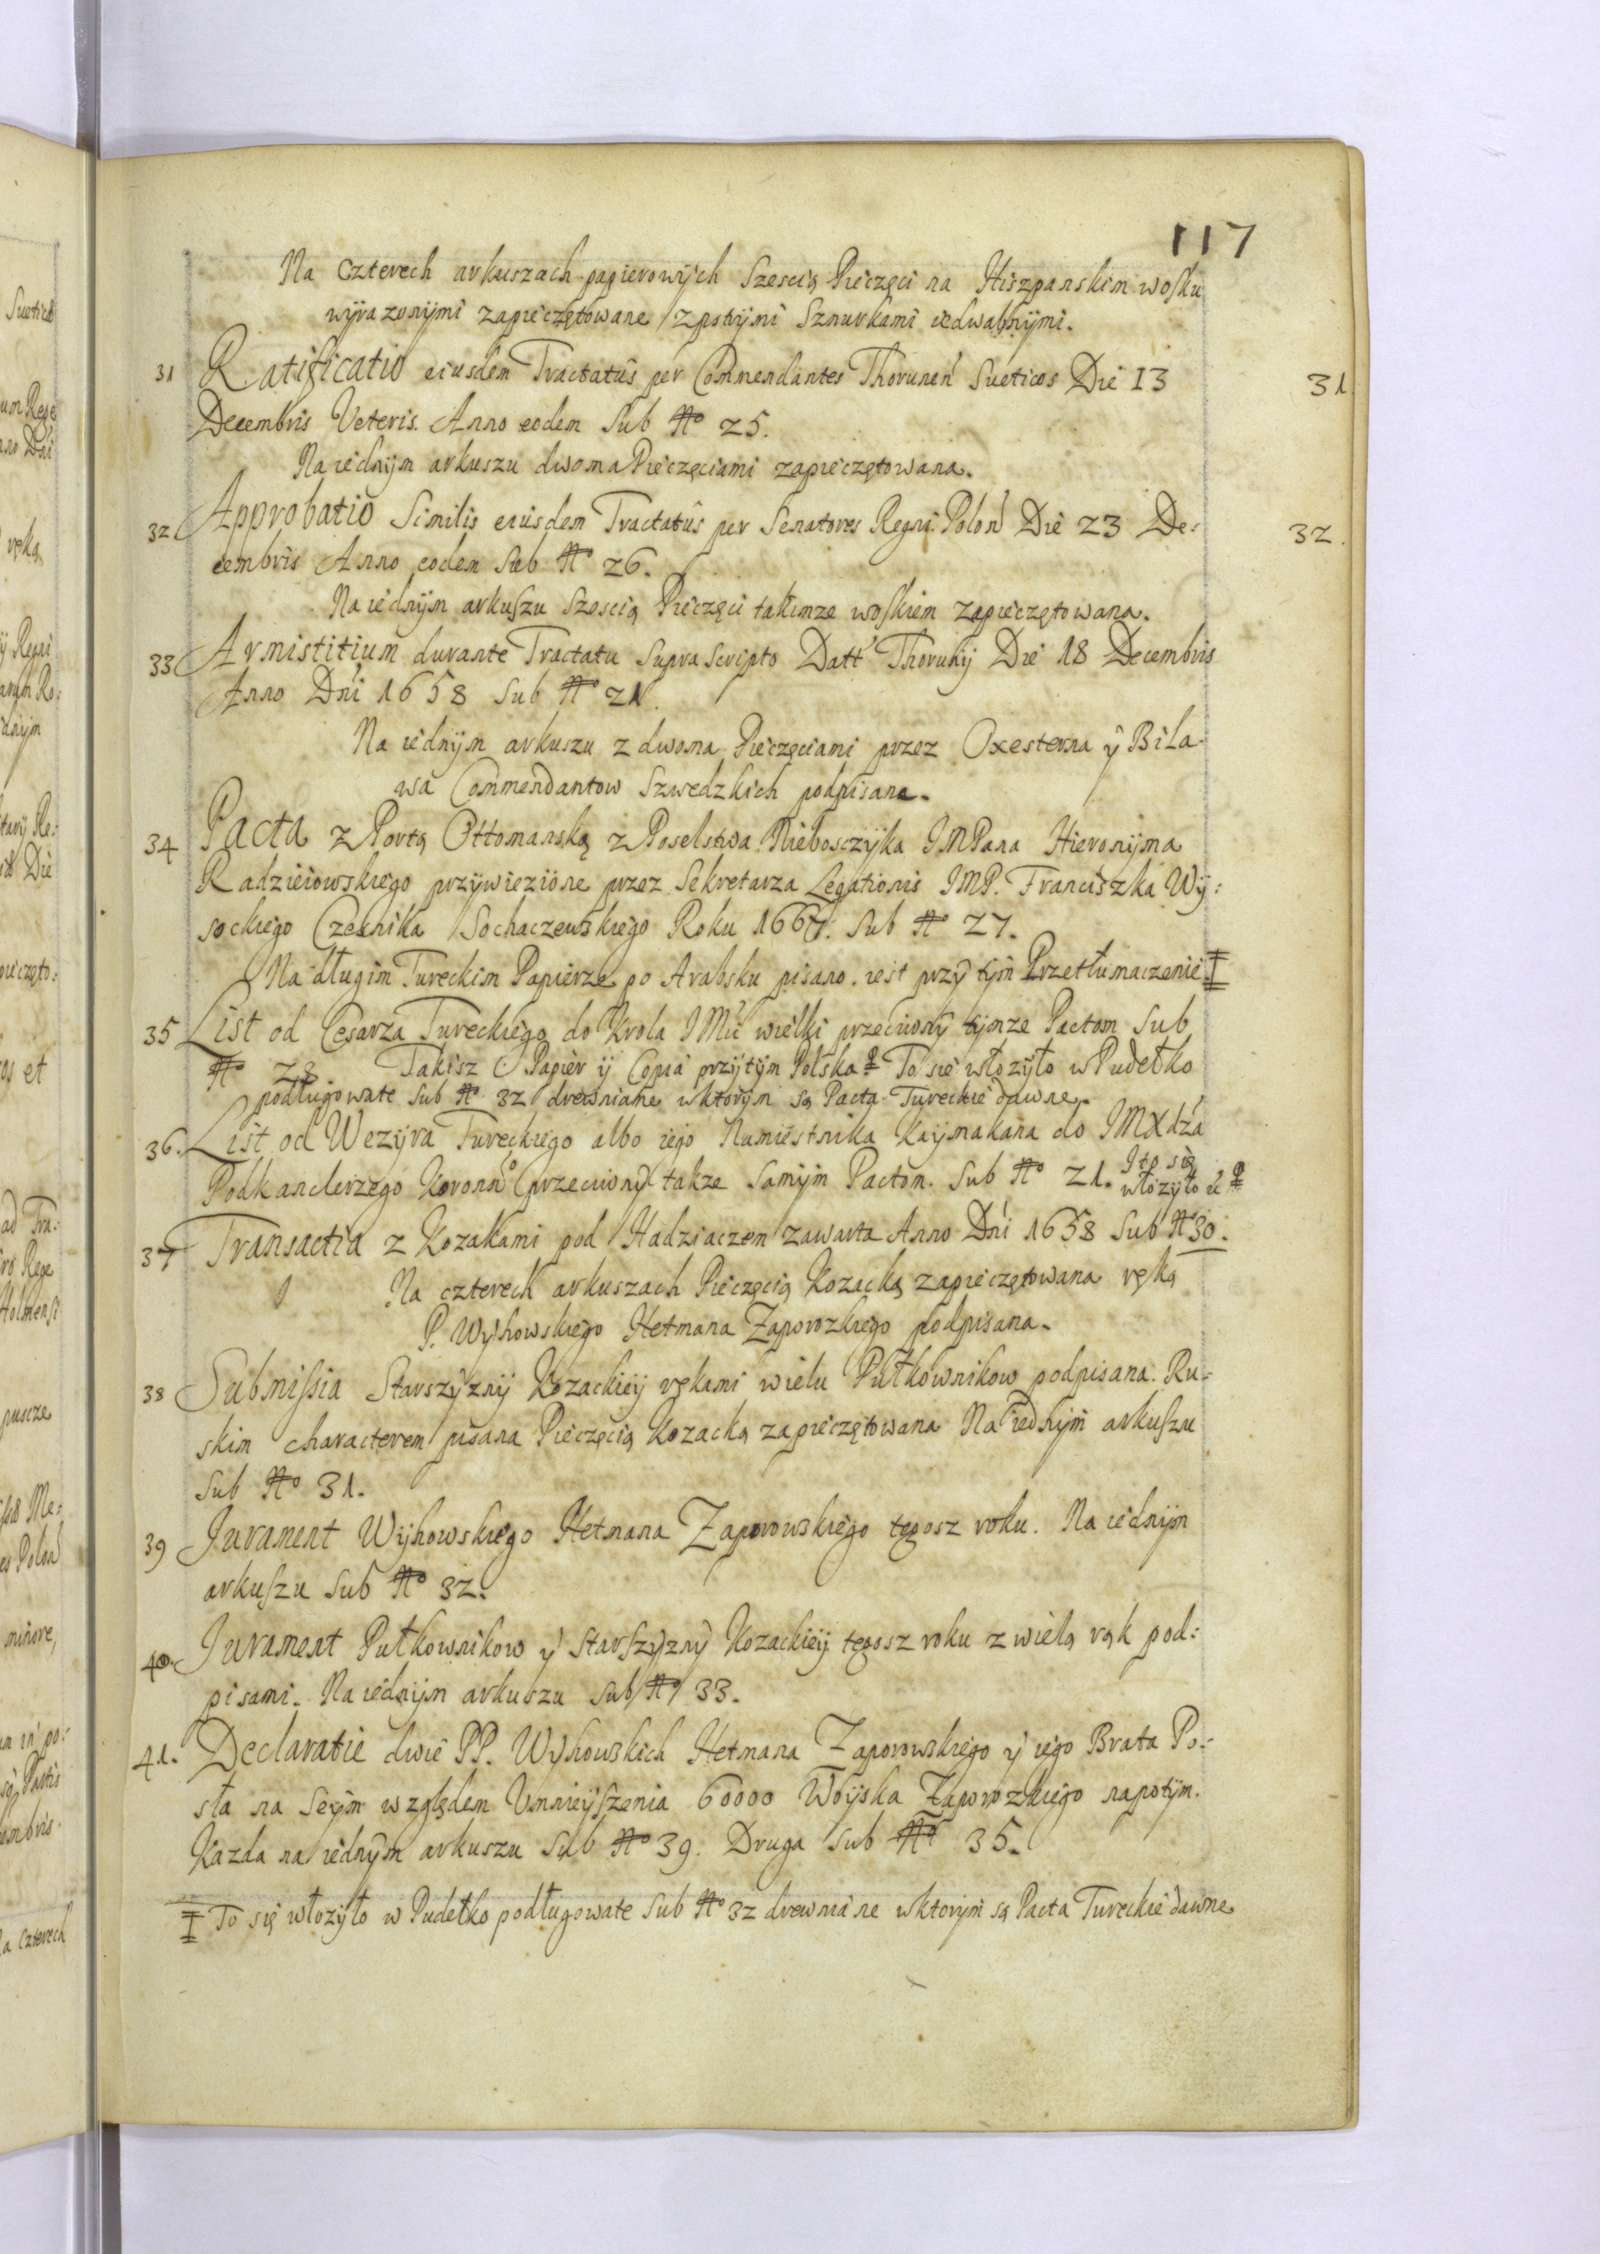 117
Na Czterech arkuszach papierowych Szescią Pieczęci na Hiszpanskim wosku
wyrazonymi zapieczętowane z pstrymi Sznurkami iedwabnymi.
31 Ratificatio eiusdem Tractatûs per Commendantes Thorunen Sueticos Die 13 31
Decembris Veteris Anno eodem Sub No 25.
Na iednym arkuszu dwoma Pieczęciami zapieczętowana.
32 Approbatio Similis eiusdem Tractatûs per Senatores Regni Polon Die 23 De- 32.
cembris Anno eodem Sub No 26.
Na iednym arkuszu Szescią Pieczęci takimze woskiem zapieczętowana.
33 Armistitium durante Tractatu supra scripto Datt Thoruny Die 18 Decembris
Anno Dni 1658 Sub No 21.
Na iednym arkuszu z dwoma Pieczęciami przez Oxesterna y Bila-
wa Commendantow Szwedzkich podpisane.
34 Pacta z Portą Ottomanską z Poselstwa Nieboszczyka IMPana Hieronyma
Radzieiowskiego przywiezione przez Sekretarza Legationis IMP. Franciszka Wy:
sockiego Czesnika Sochaczewskiego Roku 1667. Sub No 27.
Na długim Tureckim Papierze po Arabsku pisano. iest przy tym Przetłumaczenie
35 List od Cesarza Tureckiego do Krola IMci wielki przeciwny tymze Pactom Sub
No 28 Takisz Papier y Copia przytym Polska To się włozyło w Pudełko
podługowate Sub No 32 drewniane w ktorym są Pacta Tureckie dawne.
36. List od Wezyra Tureckiego albo iego Namiestnika Kaymakana do IMXdza
Podkanclerzego Koronno przeciwny takze Samym Pactom. Sub No 21. I to się
włozyło
37 Transactia z Kozakami pod Hadziaczem zawarta Anno Dni 1658 Sub No 30.
Na czterech arkuszach Pieczęcią Kozacką zapieczętowana ręką
P. Wyhowskiego Hetmana Zaporozkiego podpisana.
38 Submissia Starszyzny Kozackiey rękami wielu Pułkownikow podpisana. Ru-
skim characterem pisana Pieczęcią Kozacką zapieczętowana Na iednym arkuszu
Sub No 31.
39 Jurament Wyhowskiego Hetmana Zaporowskiego tegosz roku. Na iednym
arkuszu Sub No 32.
40. Jurament Pułkownikow y Starszyzny Kozackiey tegosz roku z wielą rąk pod:
pisami. Na iednym arkuszu Sub No 33.
41. Declaratie dwie PP. Wyhowskich Hetmana Zaporowskiego y iego Brata Po:
sła na Seym względem Umnieyszenia 60000 Woyska Zaporozkiego napotym.
Kazda na iednym arkuszu Sub No 39. Druga Sub No 35.
To się włozyło w Pudełko podługowate Sub No 32 drewniane w ktorym są Pacta Tureckie dawne